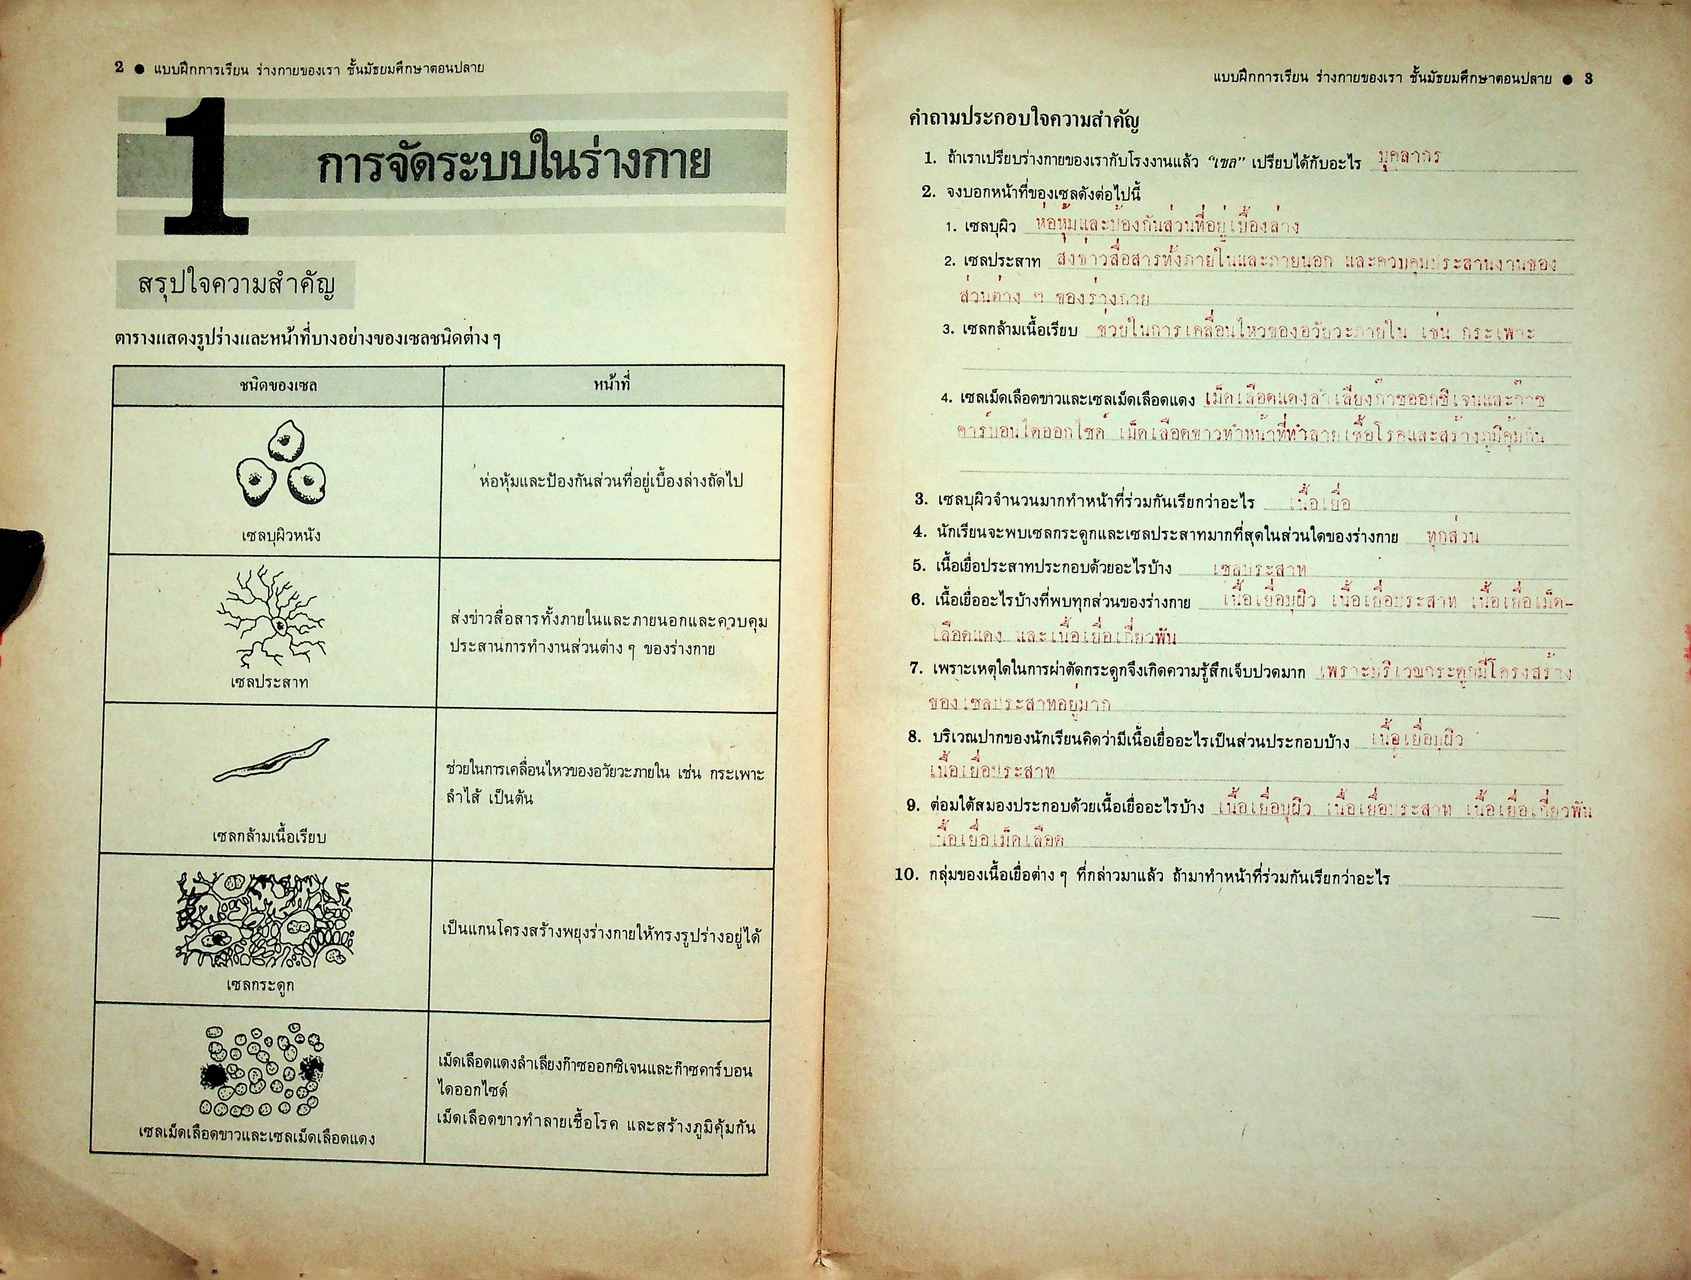 2 ● แบบฝึกการเรียน ร่างกายของเรา ชั้นมัธยมศึกษาตอนปลาย
1
การจัดระบบในร่างกาย
สรุปใจความสำคัญ
ตารางแสดงรูปร่างและหน้าที่บางอย่างของเซลชนิดต่าง ๆ
ชนิดของเซล
หน้าที่
เซลบุผิวหนัง
ห่อหุ้มและป้องกันส่วนที่อยู่เบื้องล่างถัดไป
เซลประสาท
ส่งข่าวสื่อสารทั้งภายในและภายนอกและควบคุม
ประสานการทำงานส่วนต่าง ๆ ของร่างกาย
เซลกล้ามเนื้อเรียบ
ช่วยในการเคลื่อนไหวของอวัยวะภายใน เช่น กระเพาะ
ลำไส้ เป็นต้น
เซลกระดูก
เป็นแกนโครงสร้างพยุงร่างกายให้ทรงรูปร่างอยู่ได้
เซลเม็ดเลือดขาวและเซลเม็ดเลือดแดง
เม็ดเลือดแดงลำเลียงก๊าซออกซิเจนและก๊าซคาร์บอน
ไดออกไซด์
เม็ดเลือดขาวทำลายเชื้อโรค และสร้างภูมิคุ้มกัน
แบบฝึกการเรียน ร่างกายของเรา ชั้นมัธยมศึกษาตอนปลาย ● 3
คำถามประกอบใจความสำคัญ
1. ถ้าเราเปรียบร่างกายของเรากับโรงงานแล้ว "เซล" เปรียบได้กับอะไร บุคลากร
2. จงบอกหน้าที่ของเซลดังต่อไปนี้
1. เซลบุผิว ห่อหุ้มและป้องกันส่วนที่อยู่เบื้องล่าง
2. เซลประสาท ส่งข่าวสื่อสารทั้งภายในและภายนอก และควบคุมประสานงานของ
ส่วนต่าง ๆ ของร่างกาย
3. เซลกล้ามเนื้อเรียบ ช่วยในการเคลื่อนไหวของอวัยวะภายใน เช่น กระเพาะ
4. เซลเม็ดเลือดขาวและเซลเม็ดเลือดแดง เม็ดเลือดแดงลำเลียงก๊าซออกซิเจนและก๊าซ
คาร์บอนไดออกไซด์ เม็ดเลือดขาวทำหน้าที่ทำลายเชื้อโรคและสร้างภูมิคุ้มกัน
3. เซลบุผิวจำนวนมากทำหน้าที่ร่วมกันเรียกว่าอะไร เนื้อเยื่อ
4. นักเรียนจะพบเซลกระดูกและเซลประสาทมากที่สุดในส่วนใดของร่างกาย ทุกส่วน
5. เนื้อเยื่อประสาทประกอบด้วยอะไรบ้าง เซลประสาท
6. เนื้อเยื่ออะไรบ้างที่พบทุกส่วนของร่างกาย เนื้อเยื่อบุผิว เนื้อเยื่อประสาท เนื้อเยื่อเม็ด-
เลือดแดง และเนื้อเยื่อเกี่ยวพัน
7. เพราะเหตุใดในการผ่าตัดกระดูกจึงเกิดความรู้สึกเจ็บปวดมาก เพราะบริเวณกระดูกมีโครงสร้าง
ของเซลประสาทอยู่มาก
8. บริเวณปากของนักเรียนคิดว่ามีเนื้อเยื่ออะไรเป็นส่วนประกอบบ้าง เนื้อเยื่อบุผิว
เนื้อเยื่อประสาท
9. ต่อมใต้สมองประกอบด้วยเนื้อเยื่ออะไรบ้าง เนื้อเยื่อบุผิว เนื้อเยื่อประสาท เนื้อเยื่อเกี่ยวพัน
เนื้อเยื่อเม็ดเลือด
10. กลุ่มของเนื้อเยื่อต่าง ๆ ที่กล่าวมาแล้ว ถ้ามาทำหน้าที่ร่วมกันเรียกว่าอะไร